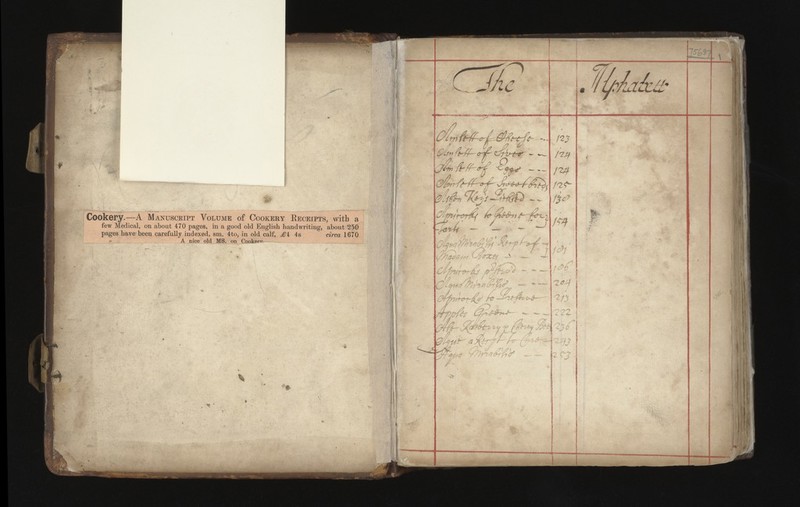 Cookery.—A Manuscript Volume of Cookery Receipts, with a
few Medical, on about 470 pages, in a good old English handwriting, about 250
pages have been carefully indexed, sm. 4to, in old calf, £4 4s circa 1670
A nice old MS. on Cookery
The Alphabett
Amlett of Cheese — 123
Amlett of Liver - - 124
Amlett of Eggs - - - 124
Amlett of Sweetbreds 125
Ashen Keys Pickled - - 130
Apricocks to
Tarts - - - - } 154
Aqua Mirabilis Receipt of
} 181
Apricocks - - - 186
Aqua Mirabilis - - - 204
Apricocks to Preserve 213
Apples - - - 222
236
Ague a Receipt to Cure 243
Aqua Mirabilis - - 253